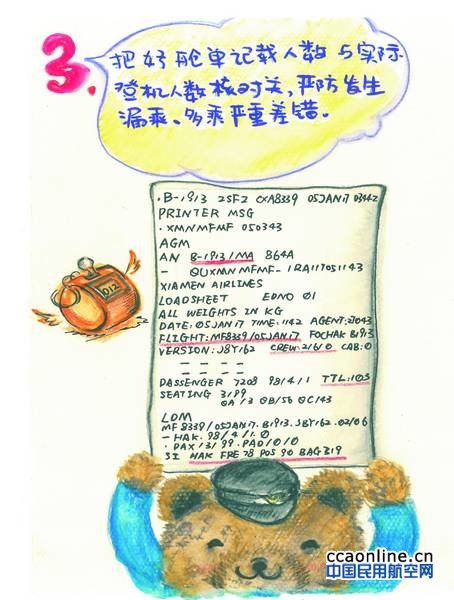 3.
把好舱单记载人数与实际
登机人数核对关，严防发生
漏乘、多乘严重差错。
012
·B-1913 25F2 CXA8339 05JAN17 0342
PRINTER MSG
·XMNMFMF 050343
AGM
AN B-1913/MA 864A
- QUXMNMFMF-1RA117051143
XIAMEN AIRLINES
LOADSHEET EDNO 01
ALL WEIGHTS IN KG
DATE:05JAN17 TIME:1142 AGENT:27043
FLIGHT:MF8339/05JAN17 FOCHAK B1913
VERSION:J8Y162 CREW:2/6/0 CAB:0
- - - -
- - - -
PASSENGER 7208 98/4/1 TTL:103
SEATING 3/99
0A/13 0B/56 0C/43
LDM
MF8339/05JAN17.B1913.J8Y162.02/06
-HAK.98/4/1.0
·PAX/3/99.PAD/0/0
SI HAK FRE 78 POS 90 BAG 319
ccaonline.cn
中国民用航空网